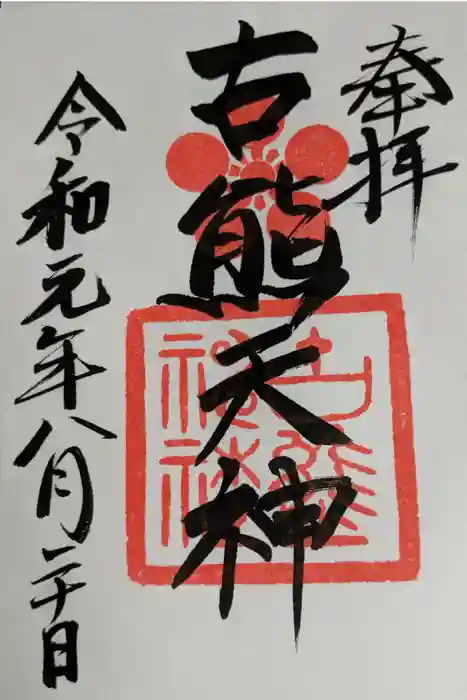 奉拝
古熊天神
令和元年八月二十日